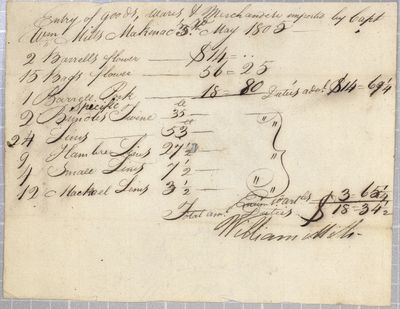 Entry of Goods, Wares & Merchandize imported by Capt
Wm Mills Makenac 3rd May 1805
2 Barrells flower — $14 = ..
15 Bags flower — 56 = 25
1 Barrell Pork — 18 = 80 Duties adol $14 = 69¼
Specific
2 Bundles Twine 35 —
24 Lines 53 —
9 Hambro Lines 27½ —
4 Small Lines 7½ —
12 Mackael Lines 3½ —
3 = 65¼
Total am. Duties $18 = 34½
William Mills